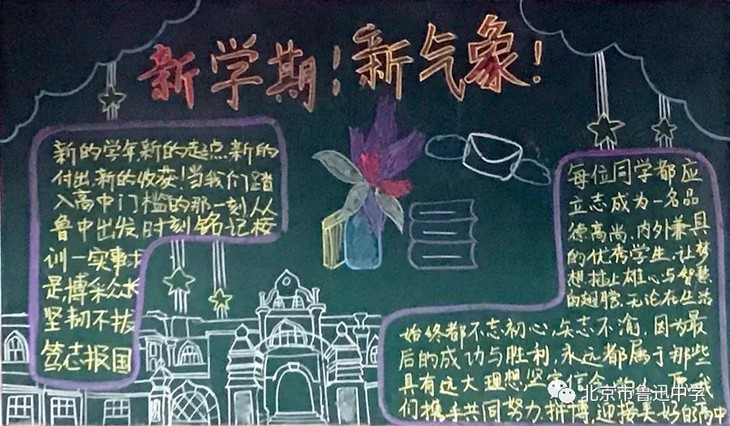 新学期！新气象！
新的学年新的起点,新的
付出,新的收获!当我们踏
入高中门槛的那一刻,从
鲁中出发,时刻铭记校
训一实事求
是博采众长
坚韧不拔
笃志报国
每位同学都应
立志成为一名品
德高尚,内外兼具
的优秀学生,让梦
想插上雄心与智慧
的翅膀,无论在生活
始终都不忘初心,矢志不渝,因为最
后的成功与胜利,永远都属于那些
具有远大理想,坚定信念
们携手共同努力,拼搏,迎接美好的高中
北京市鲁迅中学